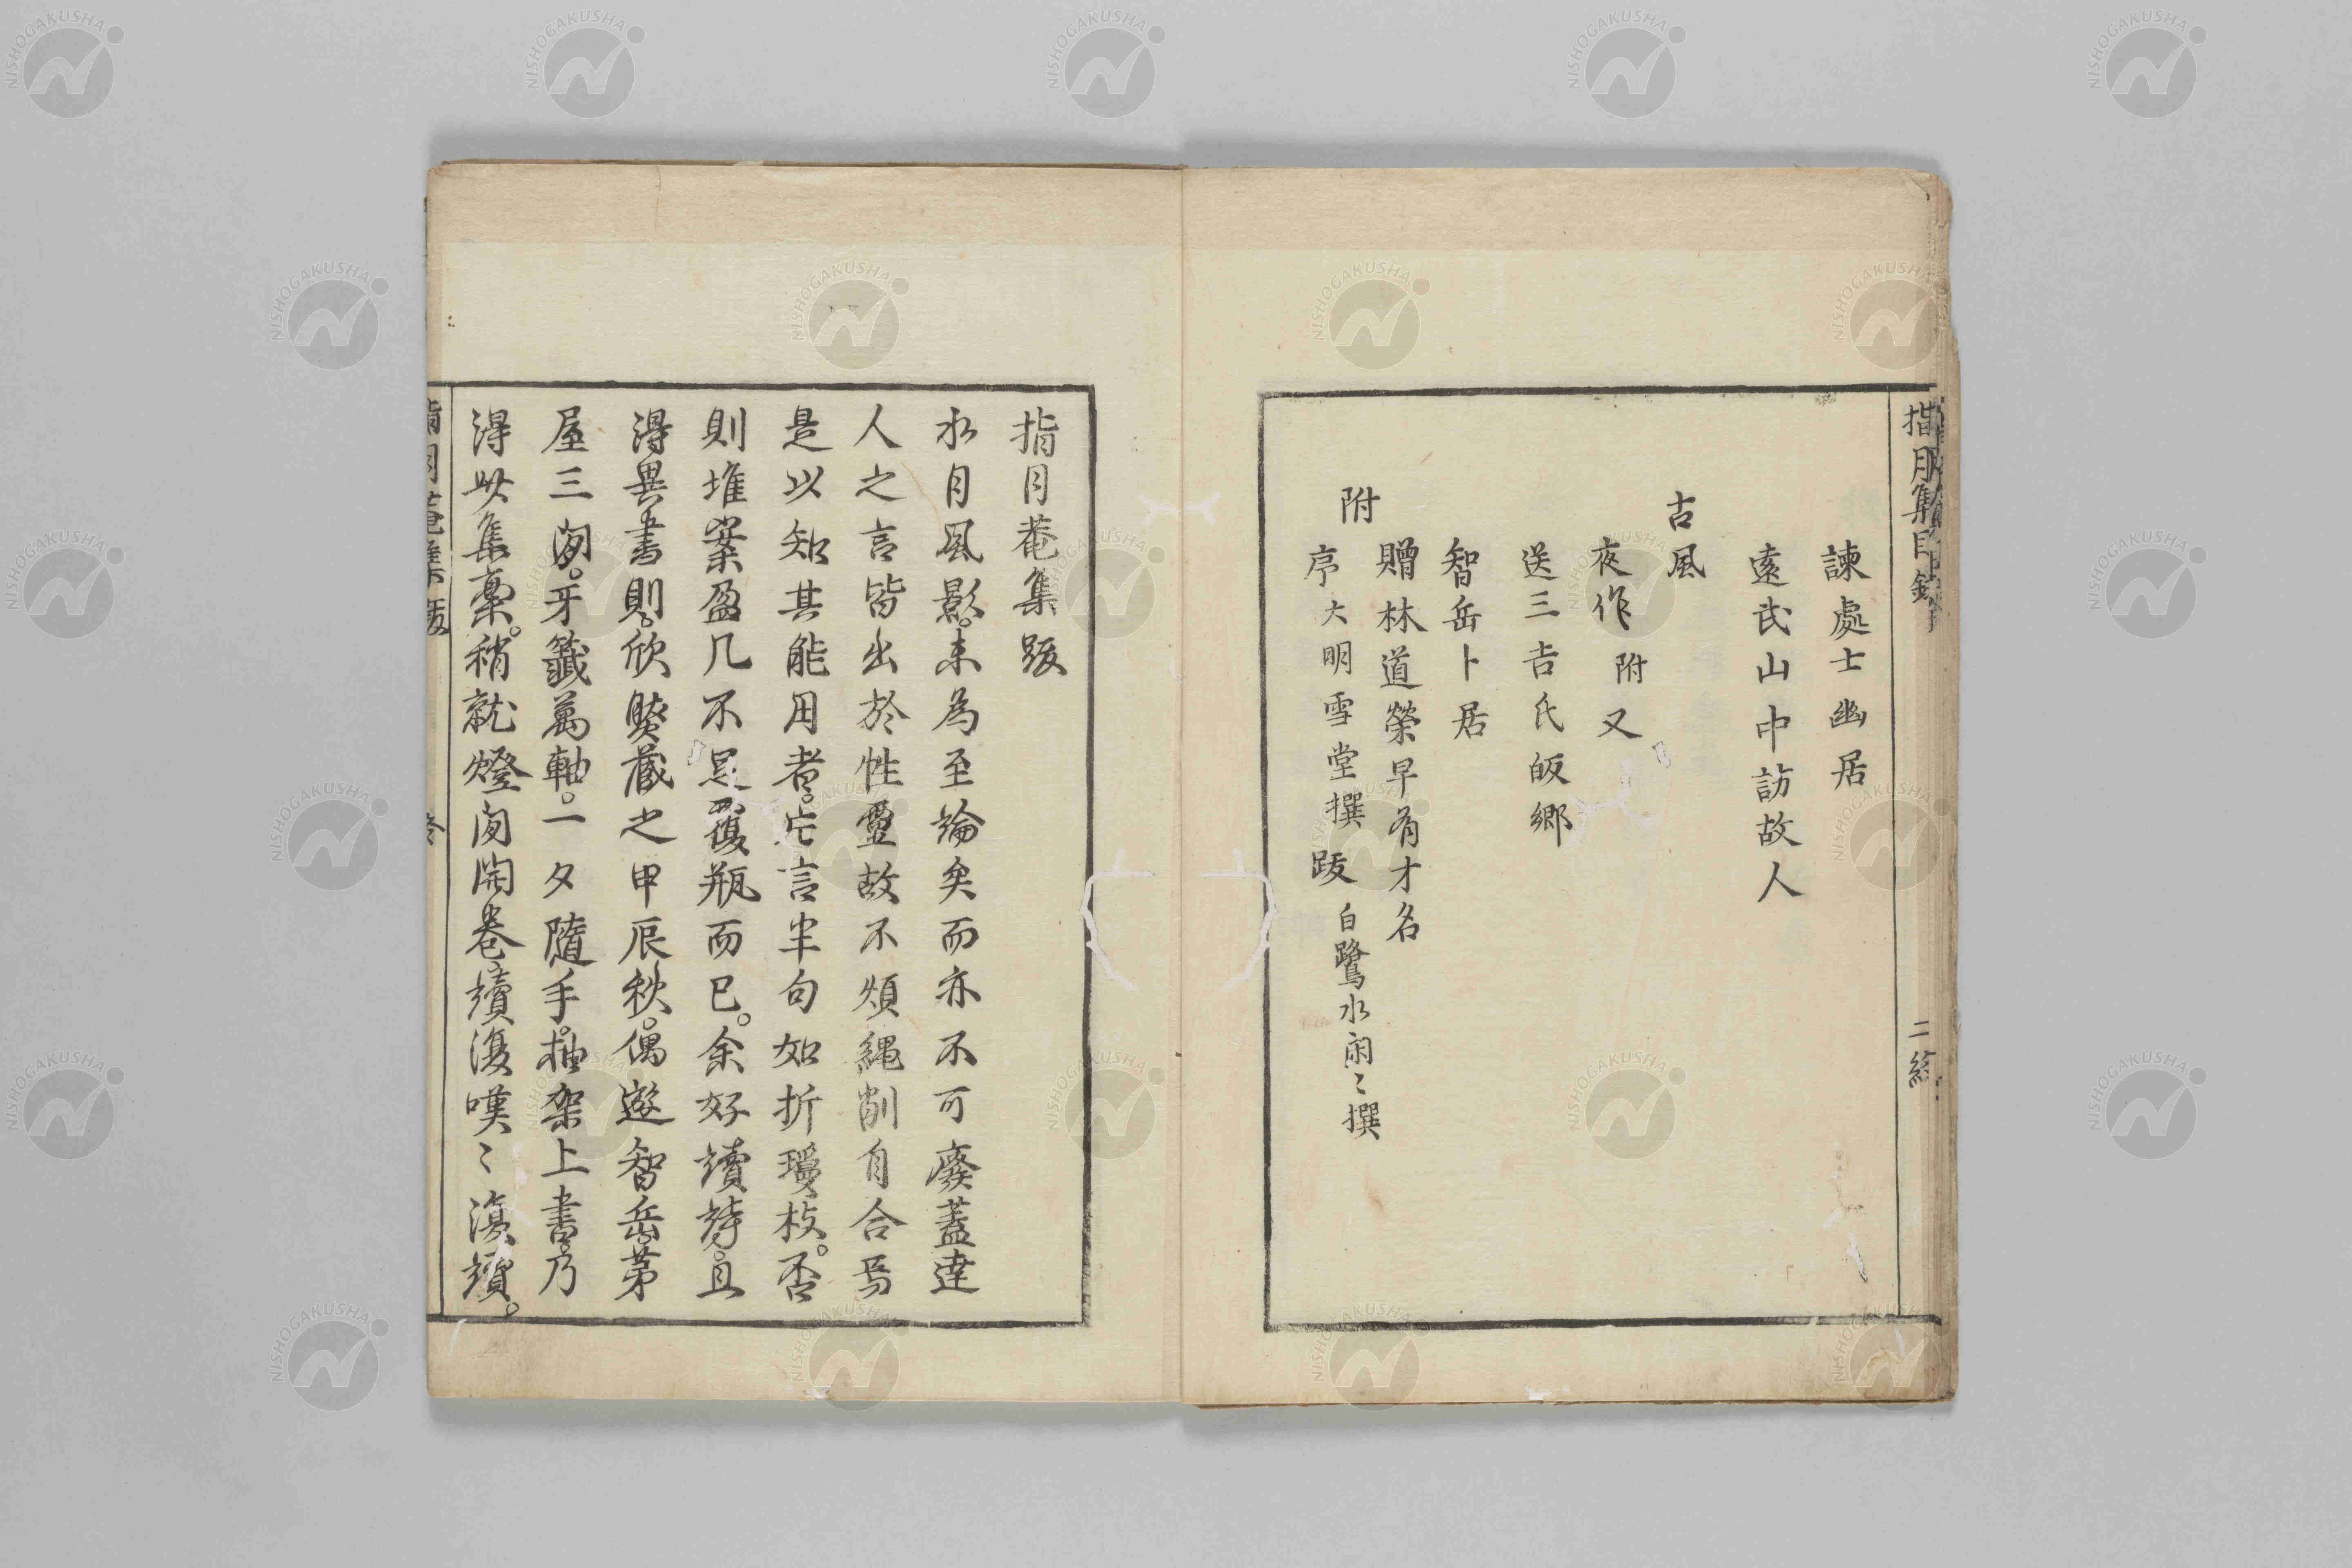 指月集目録
二
終
諫處士幽居
遠武山中訪故人
古風
夜作 附又
送三吉氏皈鄉
智岳卜居
贈林道榮早有才名
附
序 大明雪堂撰 跋 白鷺水閑〻撰
指月菴集跋
水月風影。未為至論矣而亦不可廢蓋達
人之言皆出於性靈故不煩繩削自合焉
是以知其能用者。片言半句如折瓊枝。否
則堆案盈几不足覆瓶而已。余好讀詩。且
得異書則。欣賸藏之甲辰秋。偶遊智岳。茅
屋三間。牙籤萬軸。一夕隨手。抽架上書。乃
得此集稾。稍就燈閒開卷。讀復嘆〻復讀。
指月菴集跋
NISHOGAKUSHA